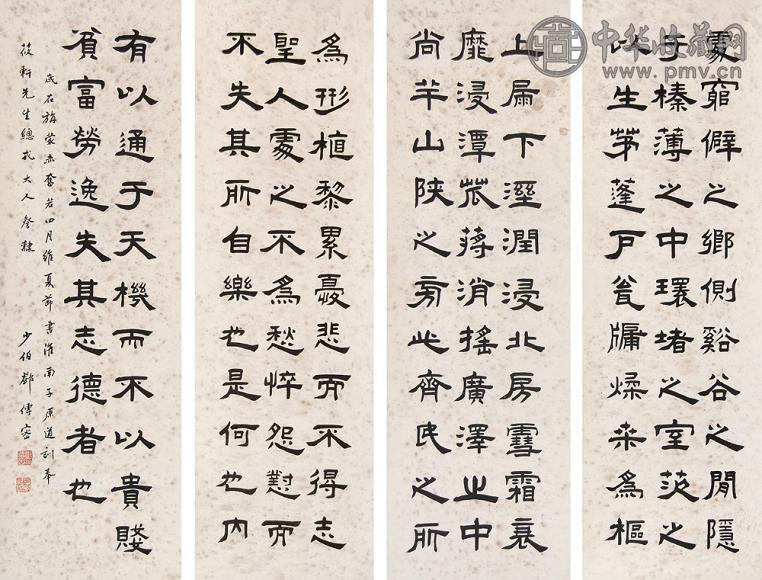 中华收藏网
www.pmv.cn
處窮僻之鄉側谿谷之閒隱
于榛薄之中環堵之室茨之
以生茅蓬戶瓮牖揉桑為樞
上扇下溼潤浸北房雪霜㐮
靡浸潭苽蔣消搖廣澤之中
尚羊山陝之旁此齊民之所
為形植黎累憂悲而不得志
聖人處之不為愁悴怨懟而
不失其所自樂也是何也內
有以通于天機而不以貴賤
貧富勞逸失其志德者也
篆蒙赤奮若四月維夏節書淮南子原道訓奉
筱軒先生總戎大人
少伯鄧傳密